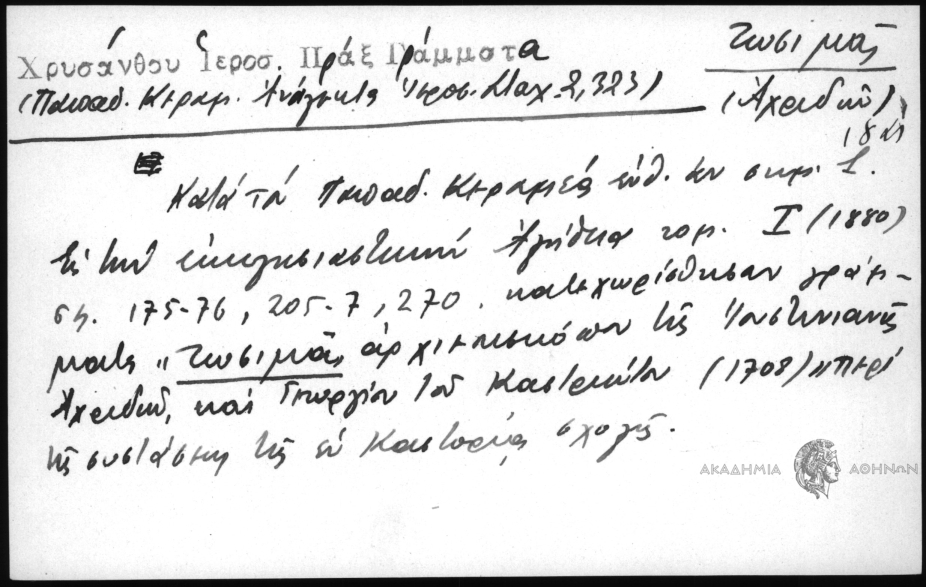 Χρυσάνθου Ἱεροσ. Πράξ Γράμματα
Ζωσιμᾶς
(Παπαδ. Κεραμ. Ἀνάλεκτα Ἱεροσ. Σταχ. 2, 323)
(Ἀχριδῶν)
Κατά τόν Παπαδ. Κεραμέα ἐνθ. ἐν σημ. 1.
Εἰς τήν ἐκκλησιαστικήν Ἀλήθεια τομ. I (1880)
σελ. 175-76, 205-7, 270. κατεχωρίσθησαν γράμ-
ματα "Ζωσιμᾶ" ἀρχιεπισκόπου τῆς Ἰουστινιανῆς
Ἀχριδῶν, καί Γεωργίου τοῦ Καστριώτου (1708) "περί
τῆς συστάσεως τῆς ἐν Καστορίᾳ σχολῆς.
ΑΚΑΔΗΜΙΑ ΑΘΗΝΩΝ